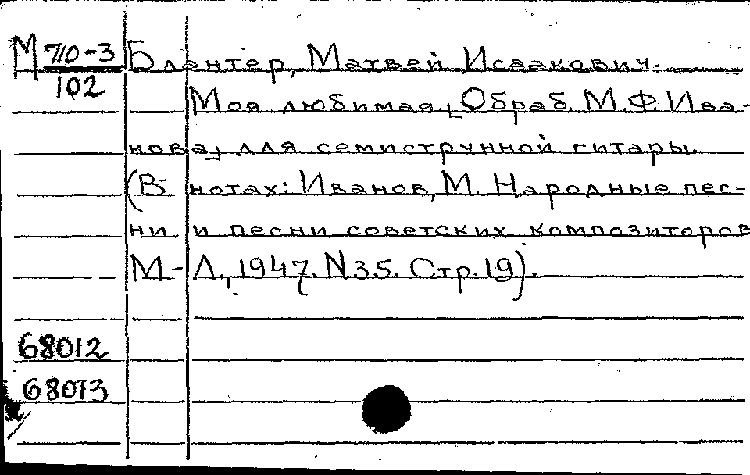 М 710-3 Блантер, Матвей Исаакович.
102
Моя любимая, Обраб. М.Ф.Ива-
нова, для семиструнной гитары.
(В нотах: Иванов, М. Народные пес-
ни и песни советских композиторов
М.-Л., 1947. N35. Стр. 19).
68012
68013